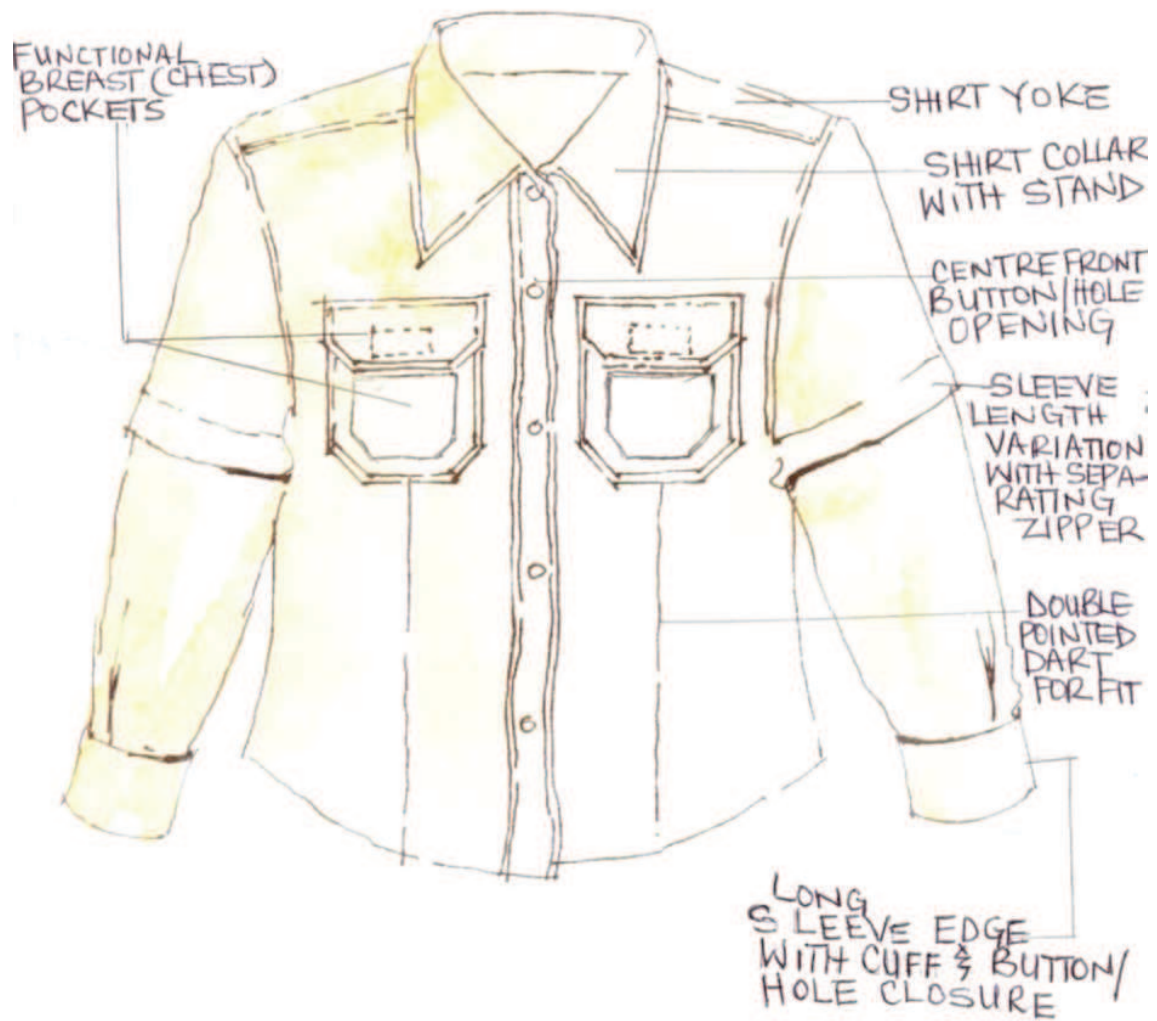 FUNCTIONAL
BREAST (CHEST)
POCKETS
SHIRT YOKE
SHIRT COLLAR
WITH STAND
CENTRE FRONT
BUTTON/HOLE
OPENING
SLEEVE
LENGTH
VARIATION
WITH SEPA-
RATING
ZIPPER
DOUBLE
POINTED
DART
FOR FIT
LONG
SLEEVE EDGE
WITH CUFF & BUTTON/
HOLE CLOSURE